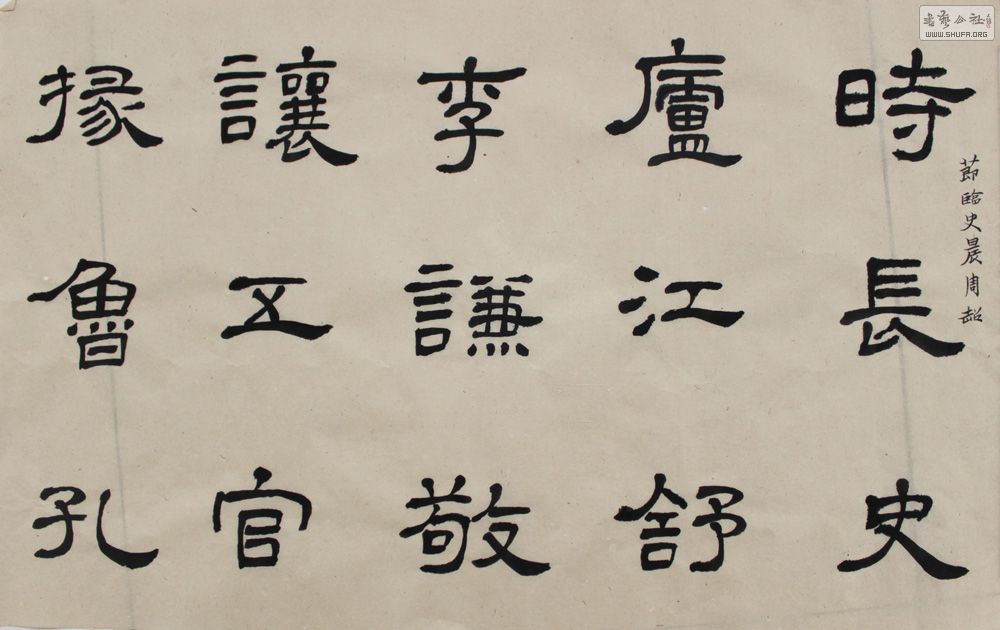 時長史
廬江舒
李謙敬
讓五官
掾魯孔
節臨史晨周韶
書藝公社
WWW.SHUFA.ORG